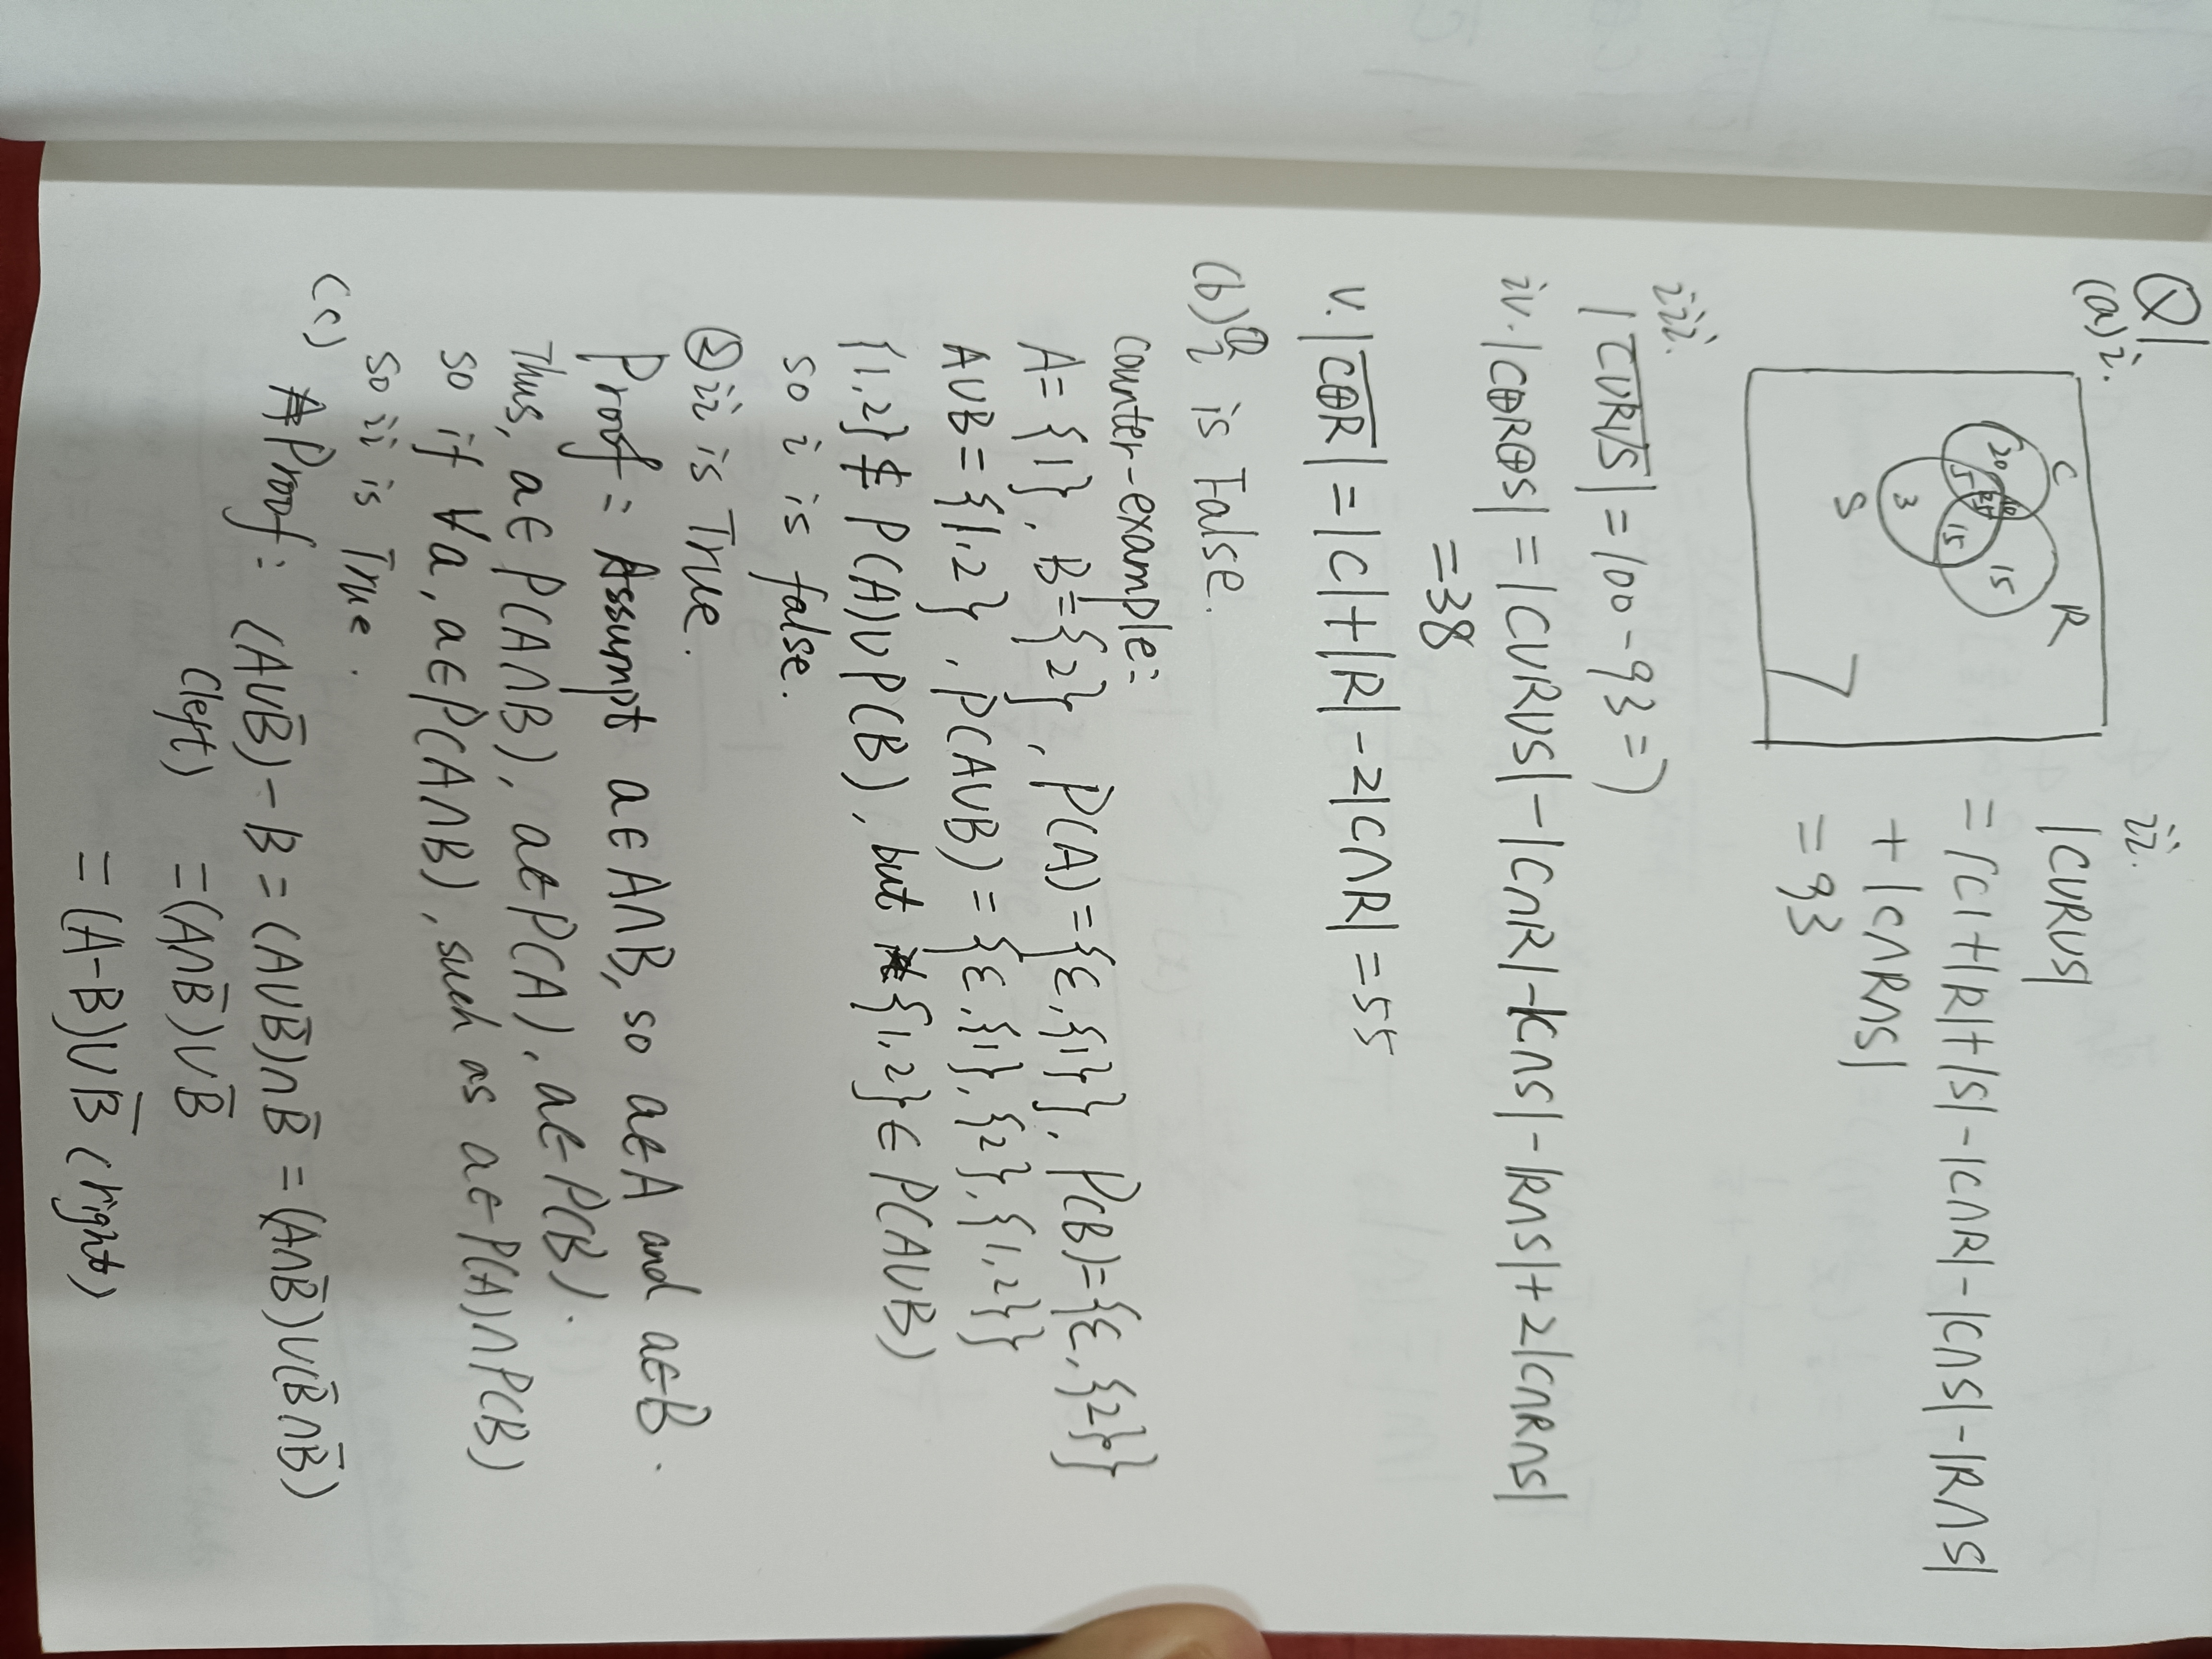 Q1
(a) i.
C
R
S
20
15
5
15
3
7
ii.
|C∪R∪S|
= |C|+|R|+|S|-|C∩R|-|C∩S|-|R∩S|
+|C∩R∩S|
= 93
iii.
|\overline{C∪R∪S}| = 100-93=7
iv. |C⊕R⊕S| = |C∪R∪S|-|C∩R|-|C∩S|-|R∩S|+2|C∩R∩S|
=38
v. |\overline{C⊕R}| = |C|+|R|-2|C∩R| = 55
(b) ① i is False.
counter-example:
A={1}, B={2}, P(A)={ε,{1}}, P(B)={ε,{2}}
A∪B={1,2}, P(A∪B)={ε,{1},{2},{1,2}}
{1,2}∉P(A)∪P(B), but {1,2}∈P(A∪B)
so i is false.
② ii is True.
Proof: Assumpt a∈A∩B, so a∈A and a∈B.
Thus, a∈P(A∩B), a∈P(A), a∈P(B).
so if ∀a, a∈P(A∩B), such as a∈P(A)∩P(B)
so ii is True.
(c) Proof: (A∪B̄)-B=(A∪B̄)∩B̄=(A∩B̄)∪(B̄∩B̄)
(left) =(A∩B̄)∪B̄
=(A-B)∪B̄ (right)